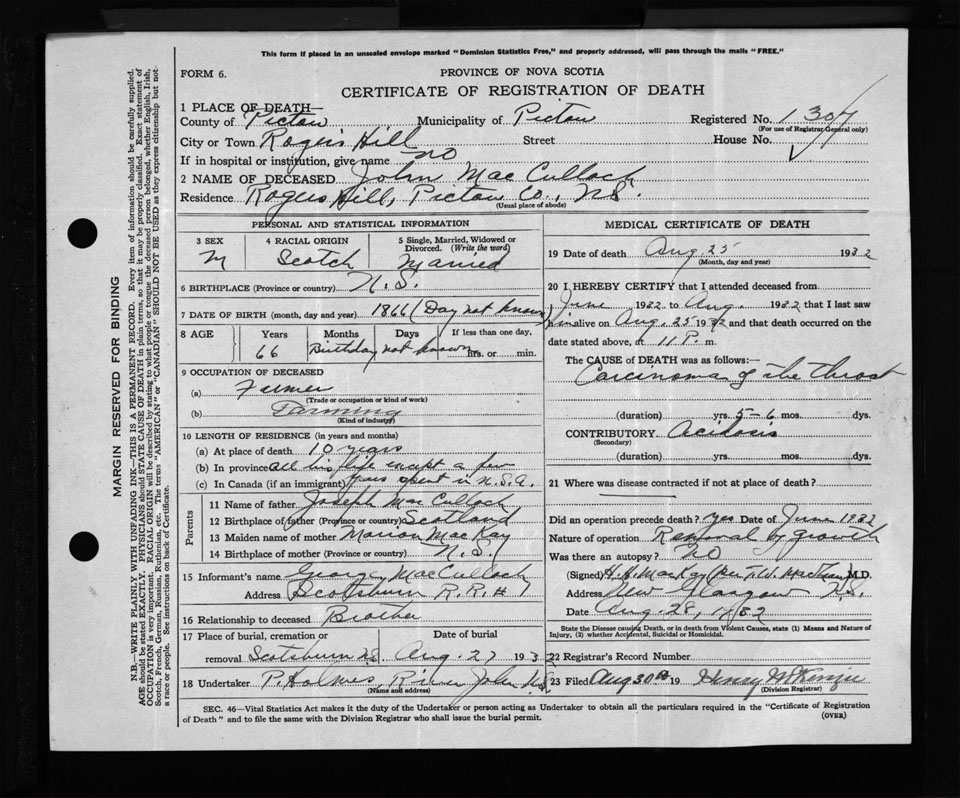 This form if placed in an unsealed envelope marked "Dominion Statistics Free," and properly addressed, will pass through the mails "FREE."
FORM 6.
PROVINCE OF NOVA SCOTIA
CERTIFICATE OF REGISTRATION OF DEATH
1 PLACE OF DEATH—
County of Pictou Municipality of Pictou Registered No. 1304
(For use of Registrar General only)
City or Town Rogers Hill Street House No.
If in hospital or institution, give name no
2 NAME OF DECEASED John MacCulloch
Residence Rogers Hill, Pictou Co., N.S.
(Usual place of abode)
PERSONAL AND STATISTICAL INFORMATION
3 SEX M
4 RACIAL ORIGIN Scotch
5 Single, Married, Widowed or Divorced. (Write the word) Married
6 BIRTHPLACE (Province or country) N.S.
7 DATE OF BIRTH (month, day and year) 1866 (Day not known)
8 AGE Years Months Days If less than one day,
66 Birthday not known hrs. or min.
9 OCCUPATION OF DECEASED
(a) Farmer
(Trade or occupation or kind of work)
(b) Farming
(Kind of industry)
10 LENGTH OF RESIDENCE (in years and months)
(a) At place of death 10 years
(b) In province all his life except a few
(c) In Canada (if an immigrant) years spent in U.S.A.
Parents
11 Name of father Joseph MacCulloch
12 Birthplace of father (Province or country) Scotland
13 Maiden name of mother Marion MacKay
14 Birthplace of mother (Province or country) N.S.
15 Informant's name George MacCulloch
Address Scotsburn R.R.#1
16 Relationship to deceased Brother
17 Place of burial, cremation or Date of burial
removal Scotsburn N.S. Aug. 27 1932
18 Undertaker P. Holmes River John N.S.
(Name and address)
MEDICAL CERTIFICATE OF DEATH
19 Date of death Aug. 25 1932
(Month, day and year)
20 I HEREBY CERTIFY that I attended deceased from
June 1932 to Aug. 1932 that I last saw
him alive on Aug. 25 1932 and that death occurred on the
date stated above, at 11 P. m.
The CAUSE of DEATH was as follows:
Carcinoma of the throat
(duration) yrs. 5-6 mos. dys.
CONTRIBUTORY Acidocis
(Secondary)
(duration) yrs. mos. dys.
21 Where was disease contracted if not at place of death?
Did an operation precede death? yes Date of June 1932
Nature of operation Removal of growth
Was there an autopsy? NO
(Signed) H.H. MacKay (Per T.W. M.D.
Address New Glasgow N.S.
Date Aug. 28, 1932
State the Disease causing Death, or in death from Violent Causes, state (1) Means and Nature of
Injury, (2) whether Accidental, Suicidal or Homicidal.
22 Registrar's Record Number
23 Filed Aug 30th 19 Henry McKenzie
(Division Registrar)
SEC. 46—Vital Statistics Act makes it the duty of the Undertaker or person acting as Undertaker to obtain all the particulars required in the "Certificate of Registration
of Death" and to file the same with the Division Registrar who shall issue the burial permit.
(OVER)
MARGIN RESERVED FOR BINDING
N.B.—WRITE PLAINLY WITH UNFADING INK—THIS IS A PERMANENT RECORD. Every item of information should be carefully supplied.
AGE should be stated EXACTLY. PHYSICIANS should STATE CAUSE OF DEATH in plain terms, so that it may be properly classified. Exact statement of
OCCUPATION is very important. RACIAL ORIGIN will be described by stating to what people or tongue the deceased person belonged, whether English, Irish,
Scotch, French, German, Russian, Ruthenian, etc. The terms "AMERICAN" or "CANADIAN" SHOULD NOT BE USED as they express citizenship but not
a race or people. See instructions on back of Certificate.